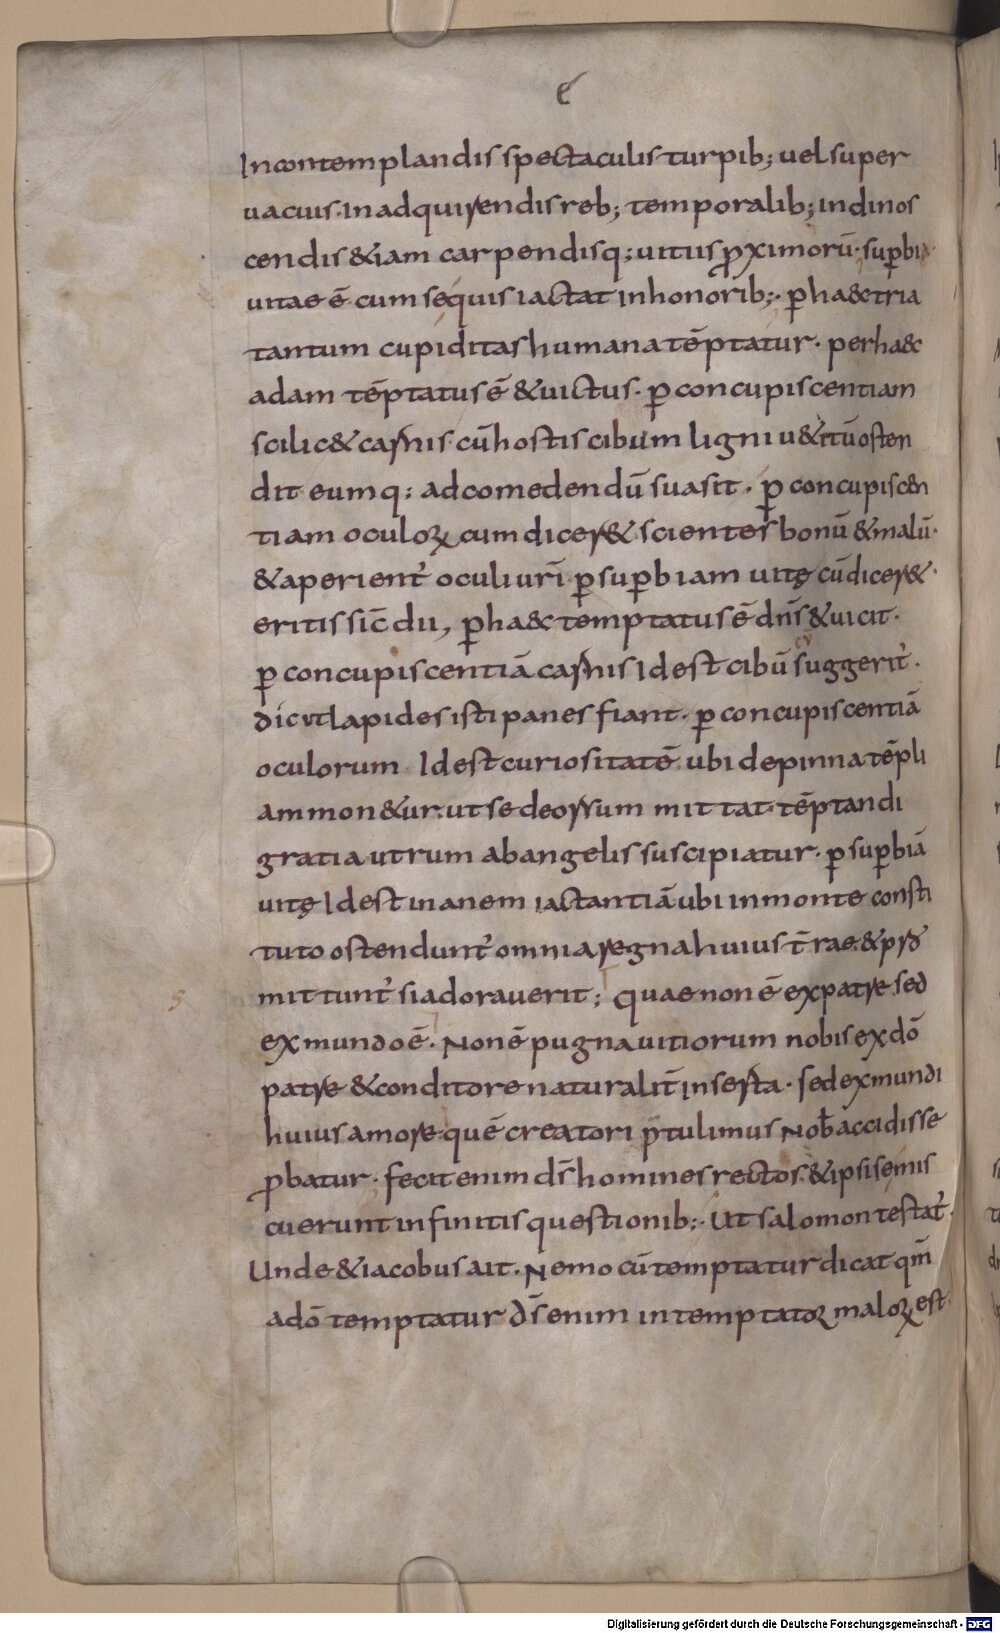 e
Incontemplandis spectaculis turpib; uel super
uacuis· In adquirendis reb; temporalib; in dinos
cendis &iam carpendisq; uitiis ꝓximorū· suꝑbia·
uitae ē cum se quis iactat in honorib;· ꝑ haec tria
tantum cupiditas humana tēptatur· per haec
adam tēptatus ē & uictus· ꝑ concupiscentiam
scilic& carnis· cū hostis cibum ligni u&itū osten
dit eumq; ad comedendū suasit· ꝑ concupiscen
tiam oculoꝝ cum dicer& scientes bonū & malū·
& aperient᷒ oculi ur̄i· ꝑ suꝑbiam uitę cū dicer&·
eritis sic̄ dii, ꝑ haec temptatus ē dn̄s & uicit·
ꝑ concupiscentiā carnis Id est cibū suggerit᷒·
dic ut lapides isti panes fiant· ꝑ concupiscentiā
oculorum Id est curiositatē· ubi de pinna tēpli
ammon&ur· ut se deorsum mittat· tēptandi
gratia utrum ab angelis suscipiatur· ꝑ suꝑbiā
uitę Id est inanem iactantiā ubi in monte consti
tuto ostendunt᷒ omnia regna huius t̄rae· & pro
mittunt᷒ si adorauerit; Quae non ē ex patre sed
5
ex mundo ē· Non ē pugna uitiorum nobis ex dō
patre & conditore naturalit̄ inserta· sed ex mundi
huius amore quē creatori p̄tulimus Nob̄ accidisse
ꝓbatur· fecit enim ds̄ homines rectos· & ipsi semis
cuerunt infinitis questionib;· Ut salomon testat᷒·
Unde & iacobus ait· Nemo cū temptatur dicat qm̄
a dō temptatur ds̄ enim intemptatoꝝ maloꝝ est·
Digitalisierung gefördert durch die Deutsche Forschungsgemeinschaft - DFG